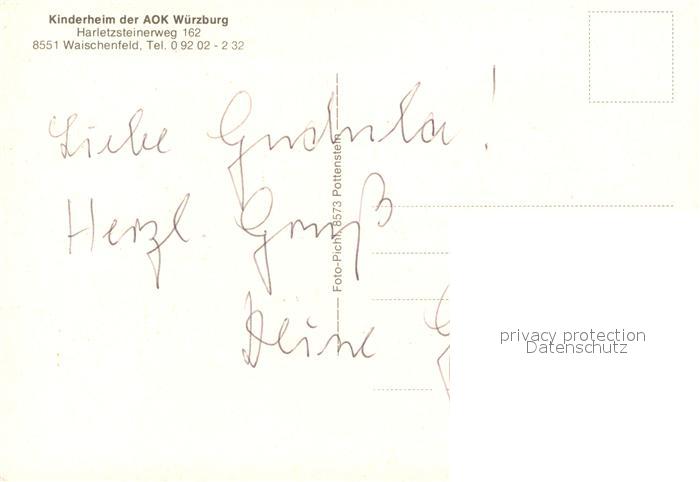 Kinderheim der AOK Würzburg
Harletzsteinerweg 162
8551 Waischenfeld, Tel. 0 92 02 - 2 32
Liebe Gudula!
Herzl. Gruß
Deine
Foto-Pichl, 8573 Pottenstein
privacy protection
Datenschutz